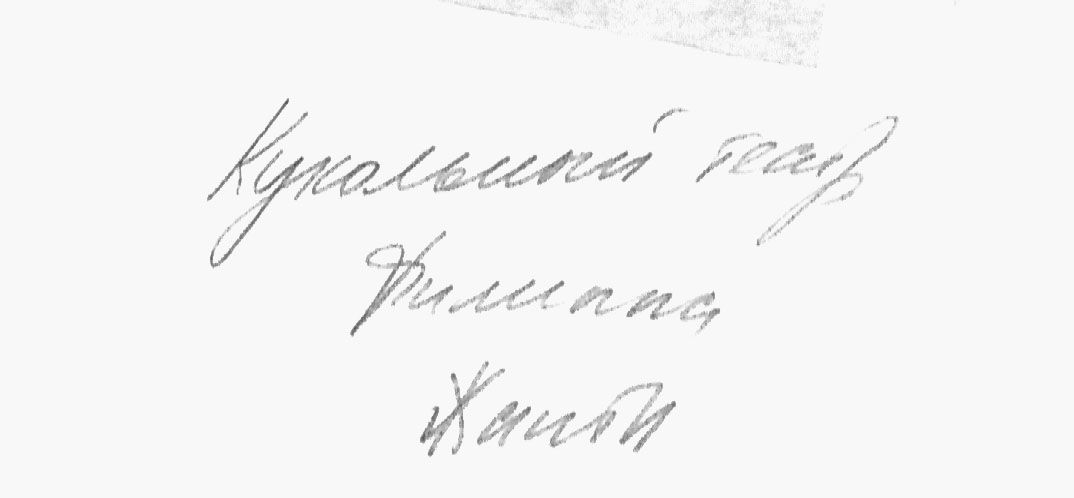 Кукольный театр
Филиппа
Жанти